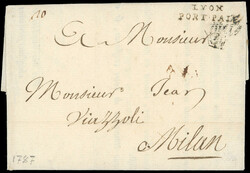 LYON
PORT PAIE
A Monsieur
Monsieur Jean
Viazzoli
Milan
1787